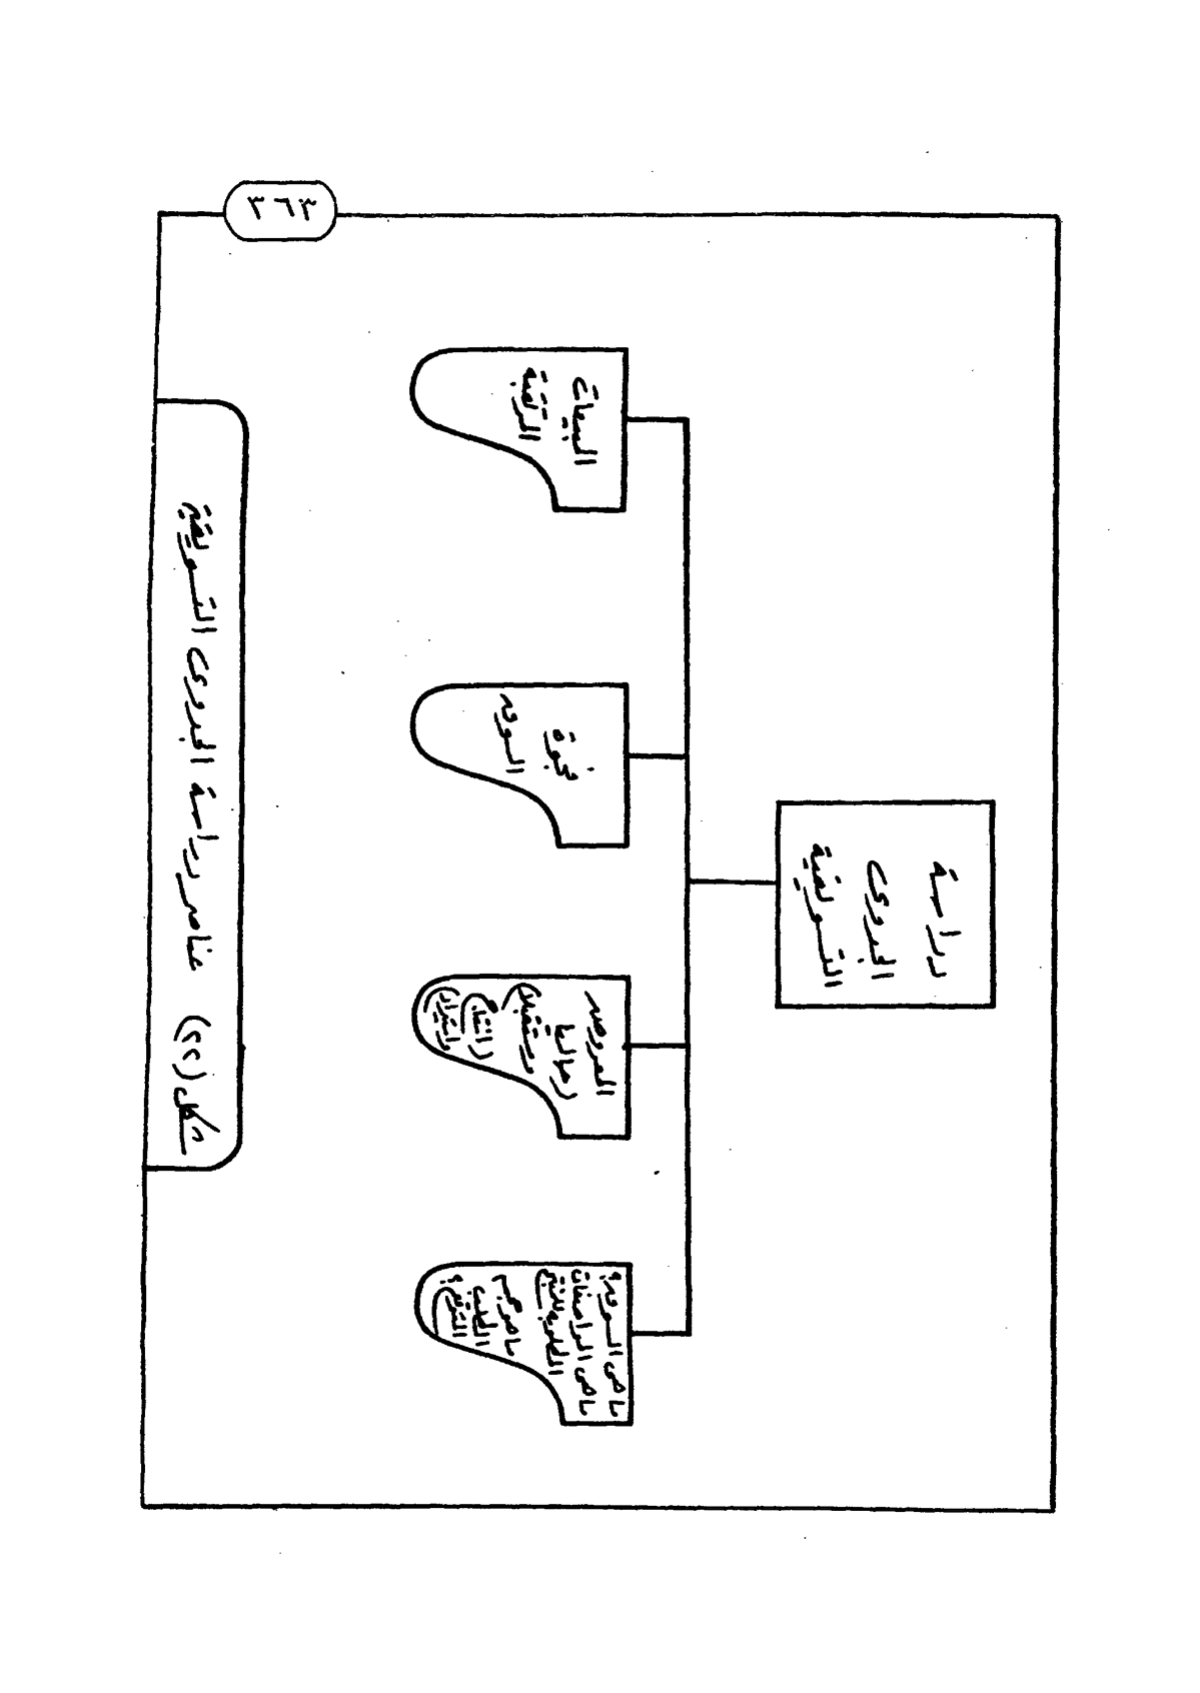 ٣٦٣
دراسة
الجدوى
التسويقية
ما هى السوق؟
ما هى المواصفات
المطلوبه للمنتج
ما هو حجم
الطلب
المتوقع؟
المعروض
(حاليا
ومستقبلا)
(انتاج
واستيراد)
فجوة
السوق
المبيعات
المرتقبة
شكل (٢٢) عناصر دراسة الجدوى التسويقية